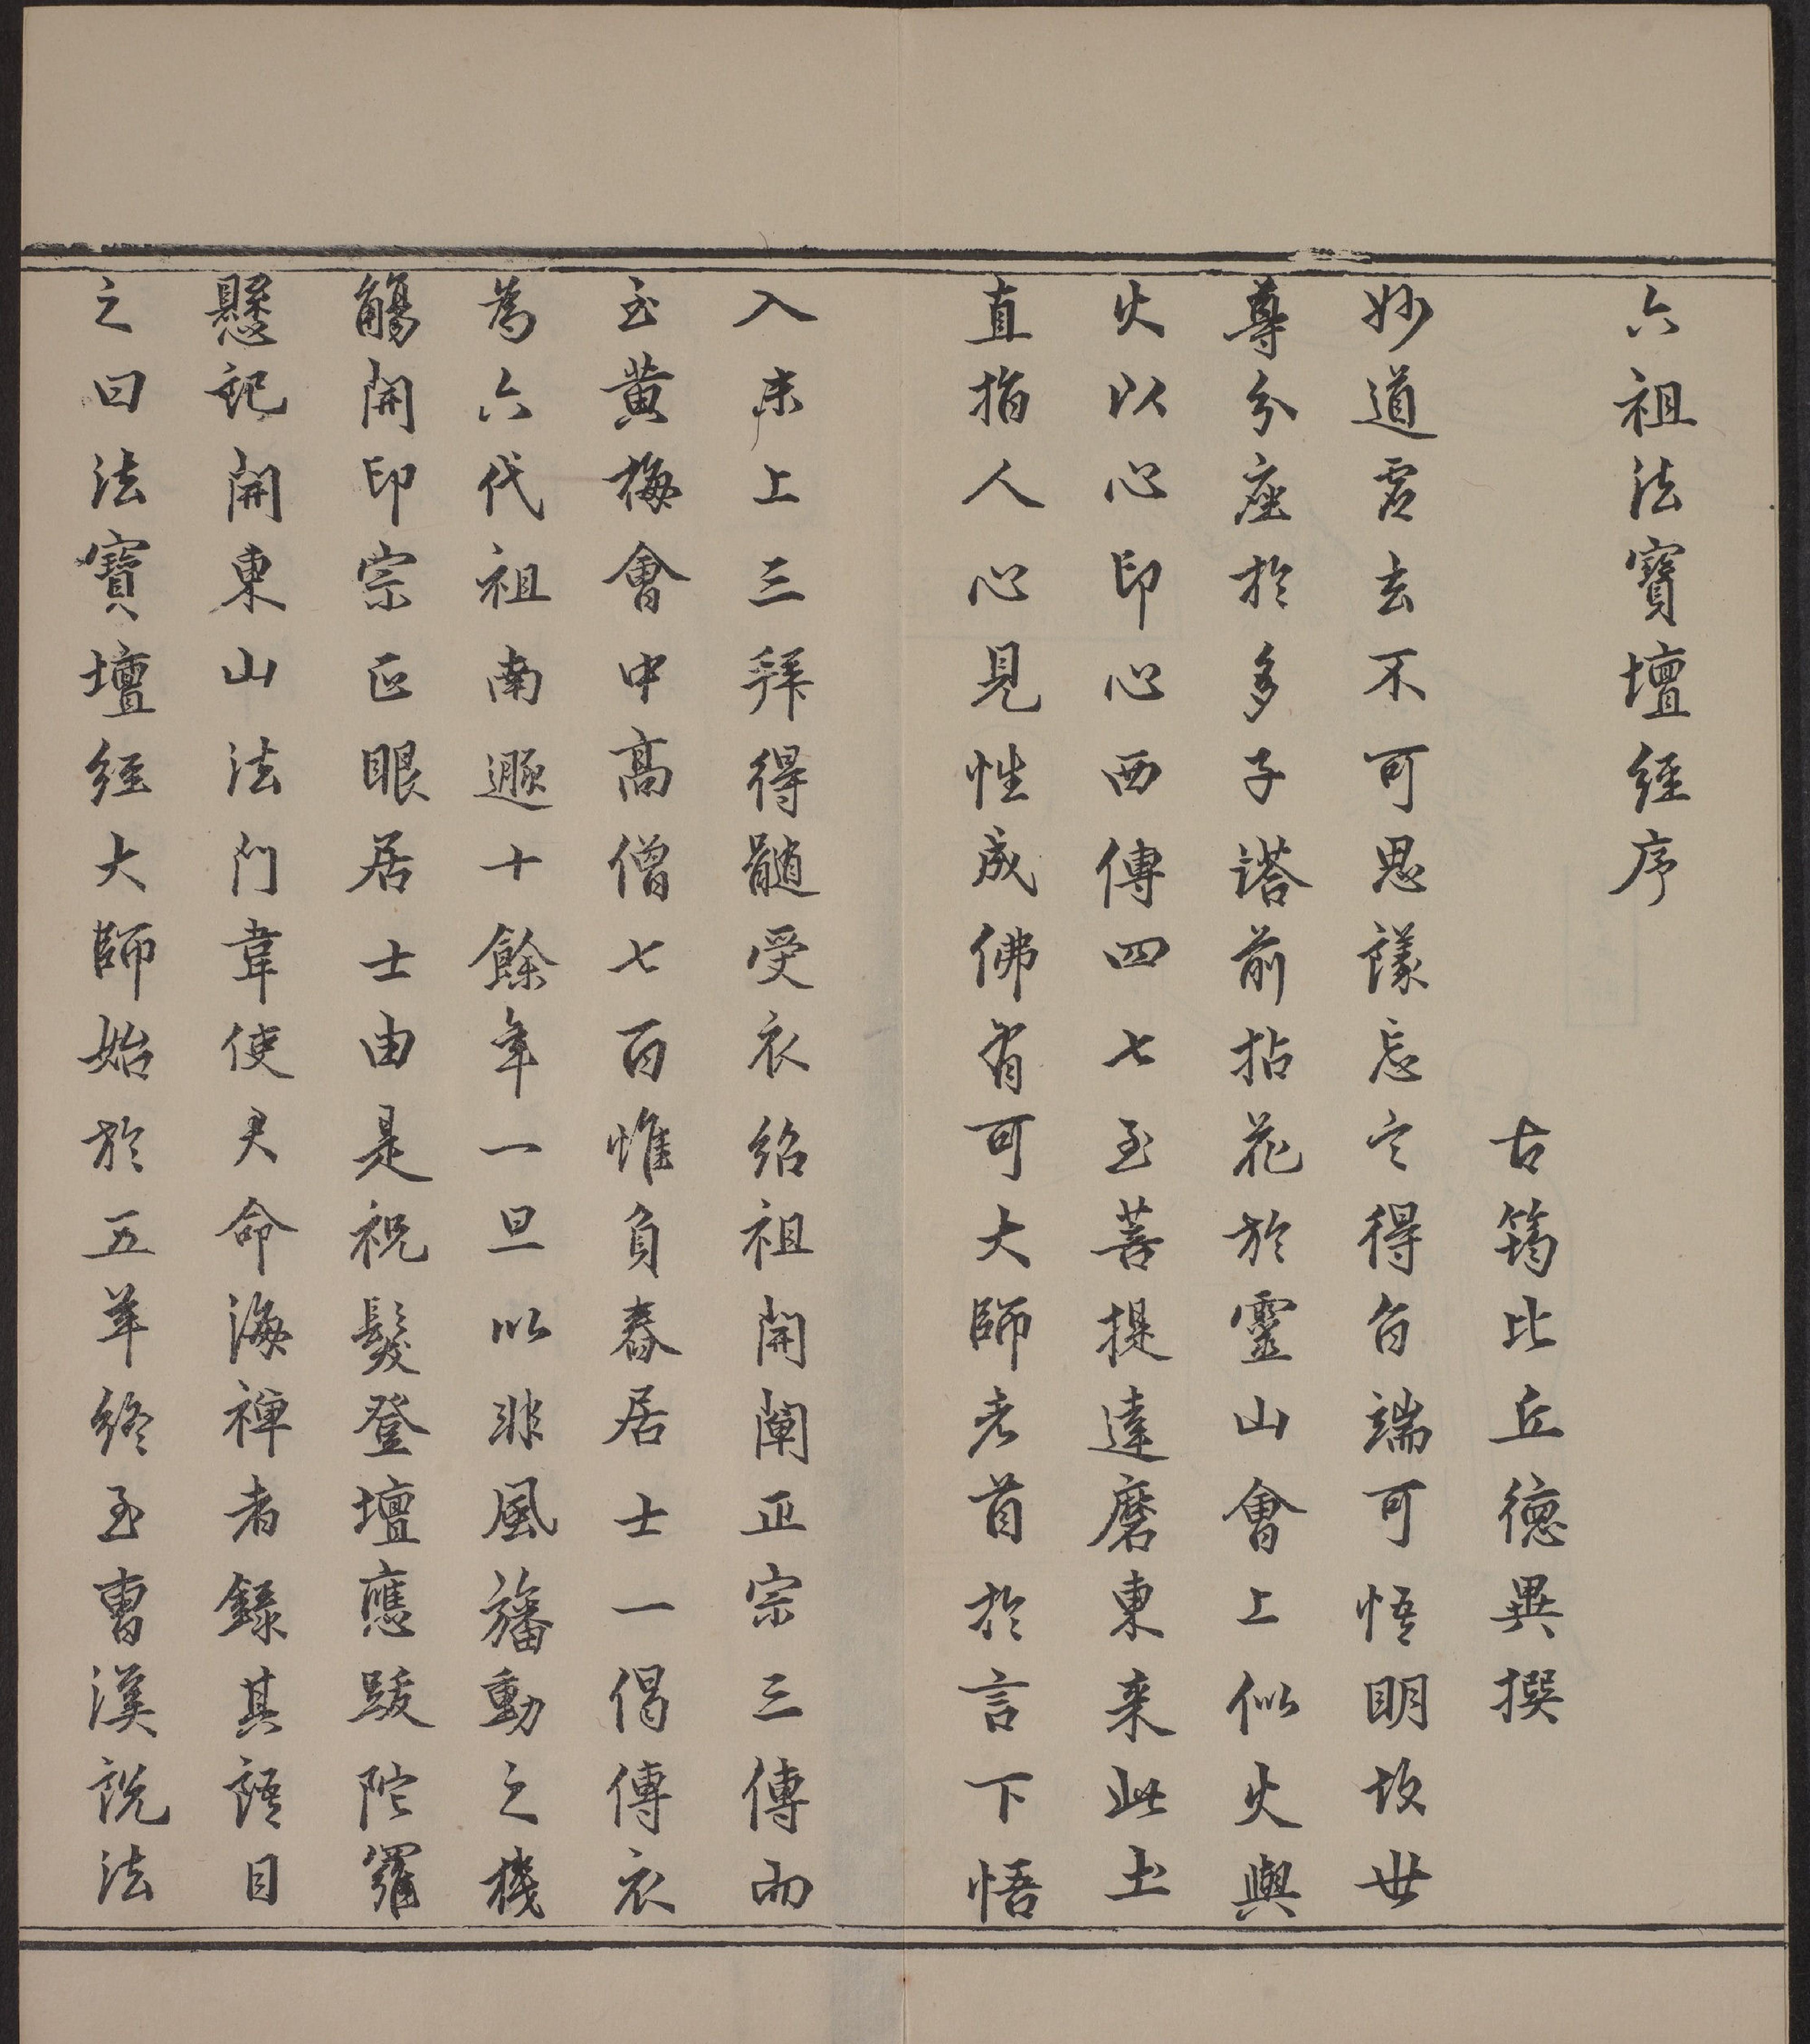 六祖法寶壇經序
古筠比丘德異撰
妙道虛玄不可思議忘言得旨端可悟明故世
尊分座於多子塔前拈花於靈山會上似火與
火以心印心西傳四七至菩提達磨東来此土
直指人心見性成佛有可大師者首於言下悟
入末上三拜得髓受衣紹祖開闡正宗三傳而
至黃梅會中高僧七百惟負舂居士一偈傳衣
為六代祖南遯十餘年一旦以非風旛動之機
觸開印宗正眼居士由是祝髮登壇應跋陀羅
懸記開東山法門韋使君命海禪者錄其語目
之曰法寶壇經大師始於五羊終至曹溪說法